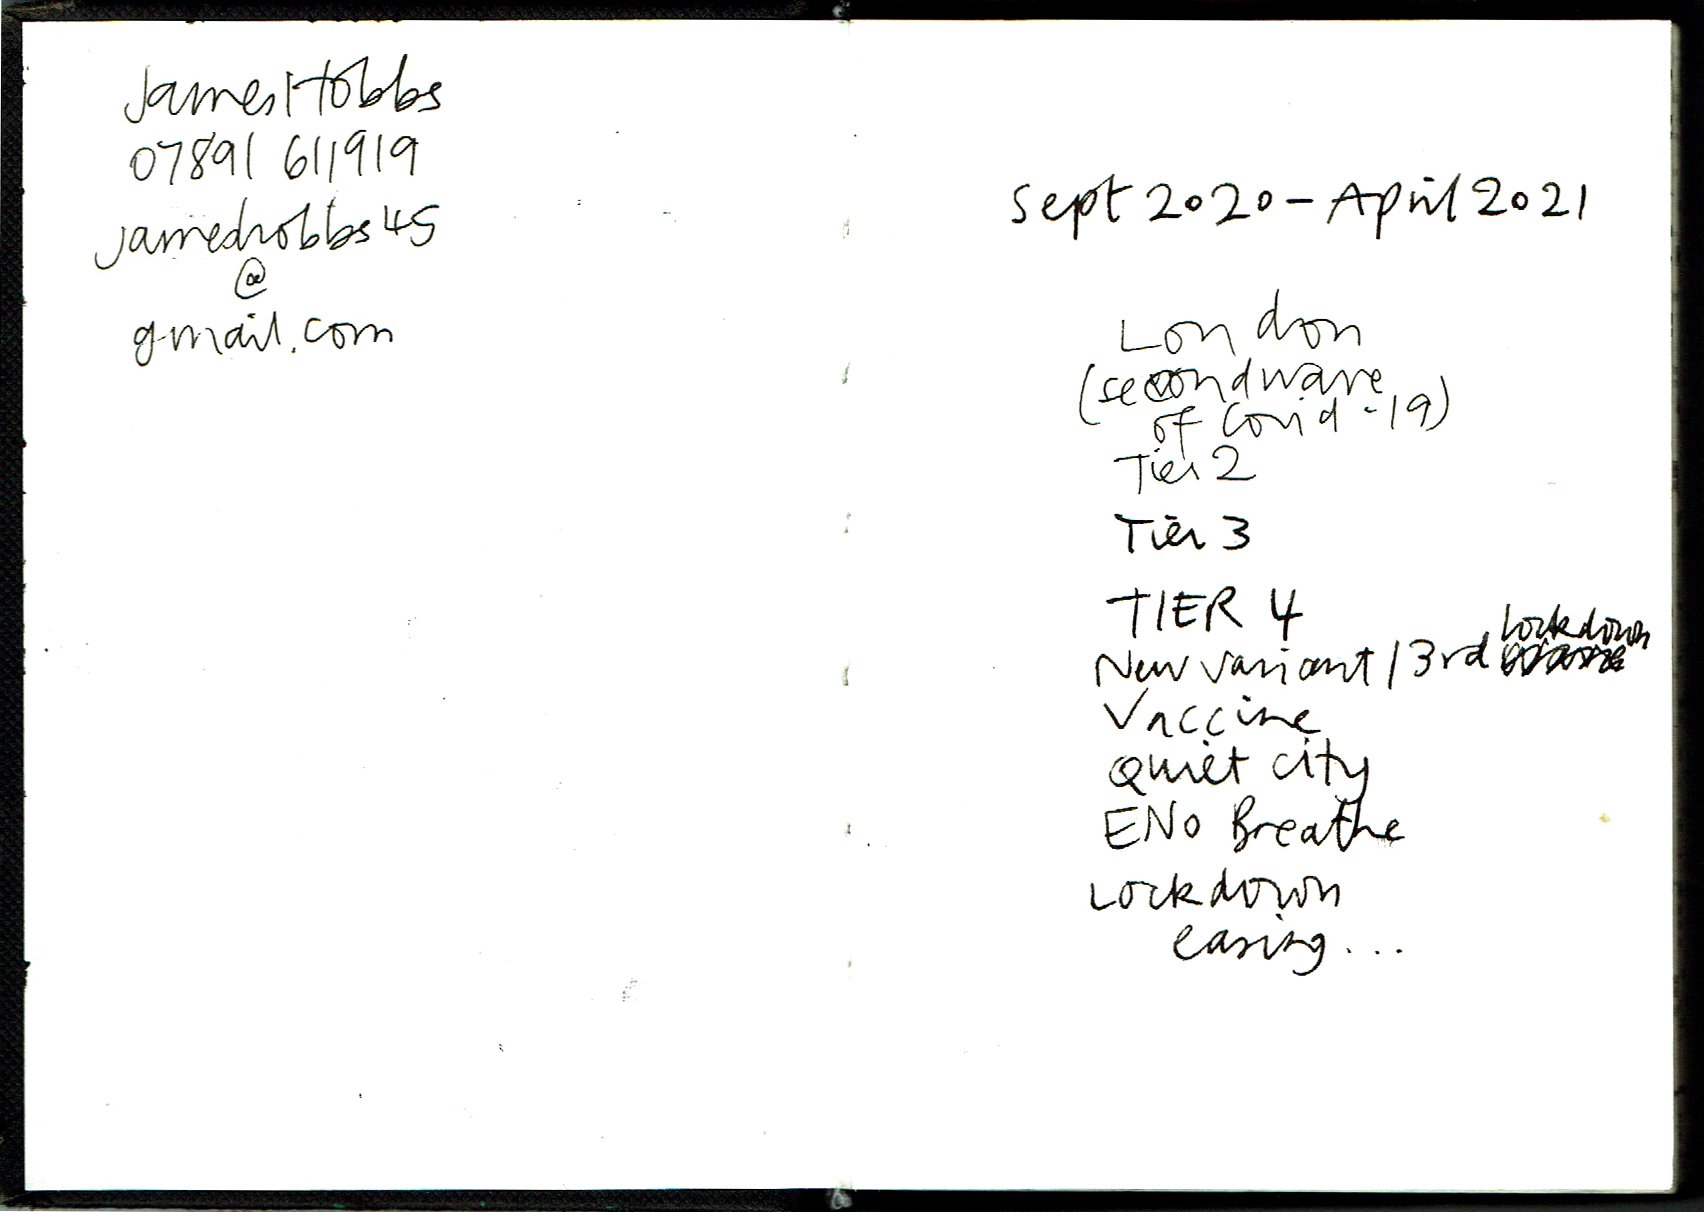 James Hobbs
07891 611919
jameshobbs45
@
gmail.com
Sept 2020 - April 2021
London
(second wave
of Covid-19)
Tier 2
Tier 3
TIER 4
lockdown
New variant / 3rd
Vaccine
Quiet city
ENO Breathe
Lockdown
easing...